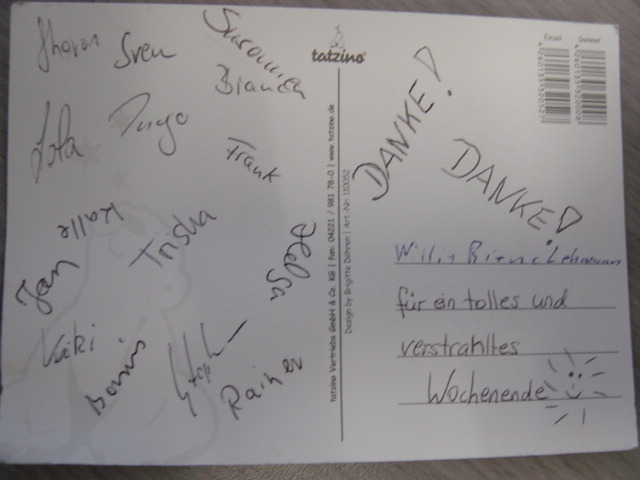 Sven
Bianca
Lola
Ingo
Frank
Kalle
Trisha
Jan
Käki
Dennis
Rainer
tatzino
tatzino Vertriebs GmbH & Co. KG | fon: 04221 / 981 78-0 | www.tatzino.de
Design by Brigitte Döhren | Art.-Nr. 110052
Einzel
Sammel
DANKE!
DANKE!
Willi + Biene Lehmann
für ein tolles und
verstrahltes
Wochenende